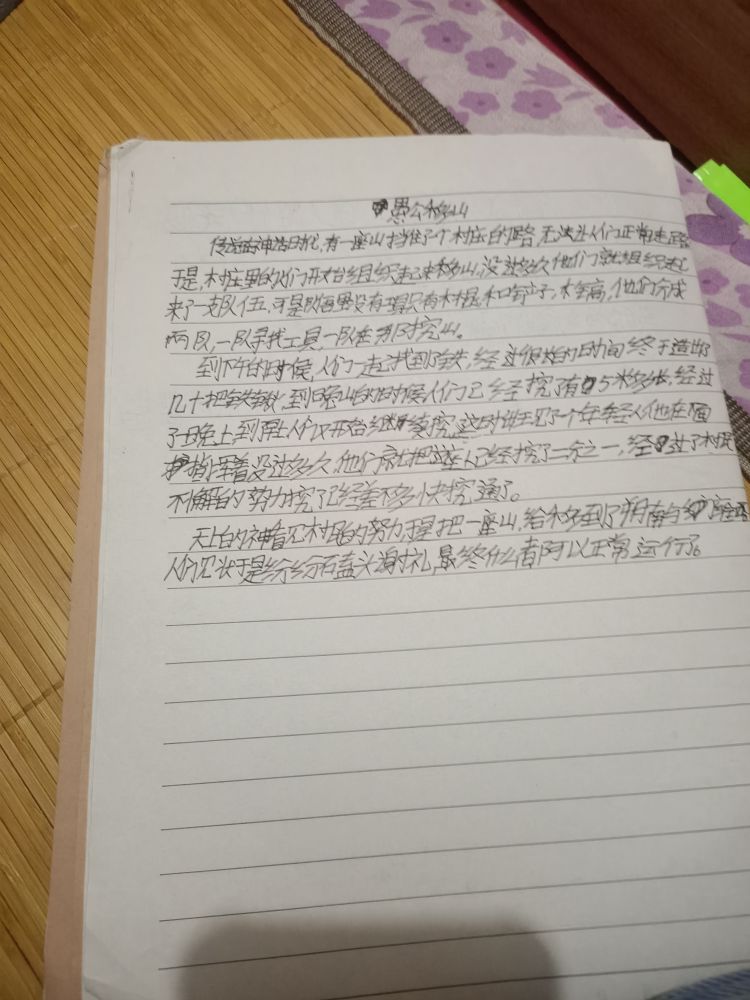 愚公移山
传说在神话时代,有一座山挡住了个村庄的路,无法让人们正常走路
于是,村庄里的人们开始组织起来移山,没过多久他们就组织起
来了一支队伍,可是那里没有工具只有木棍和,他们分成
两队,一队寻找工具一队在那挖山。
到下午的时候,人们一起找到了铁,经过很短的时间终于造出了
几十把铁锹,到晚上的时候人们已经挖了有5米多长,经过
了晚上到早上人们又开始继续挖,这时讲述了个年轻人他在
指挥着没过多久,他们就把这座人已经挖了二分之一,经过了村民
不懈的努力挖了已经差不多快挖通了。
天上的神看见村民的努力,于是把一座山,给移到了朔南与
人们见状于是纷纷磕头谢礼,最终可以正常运行了。